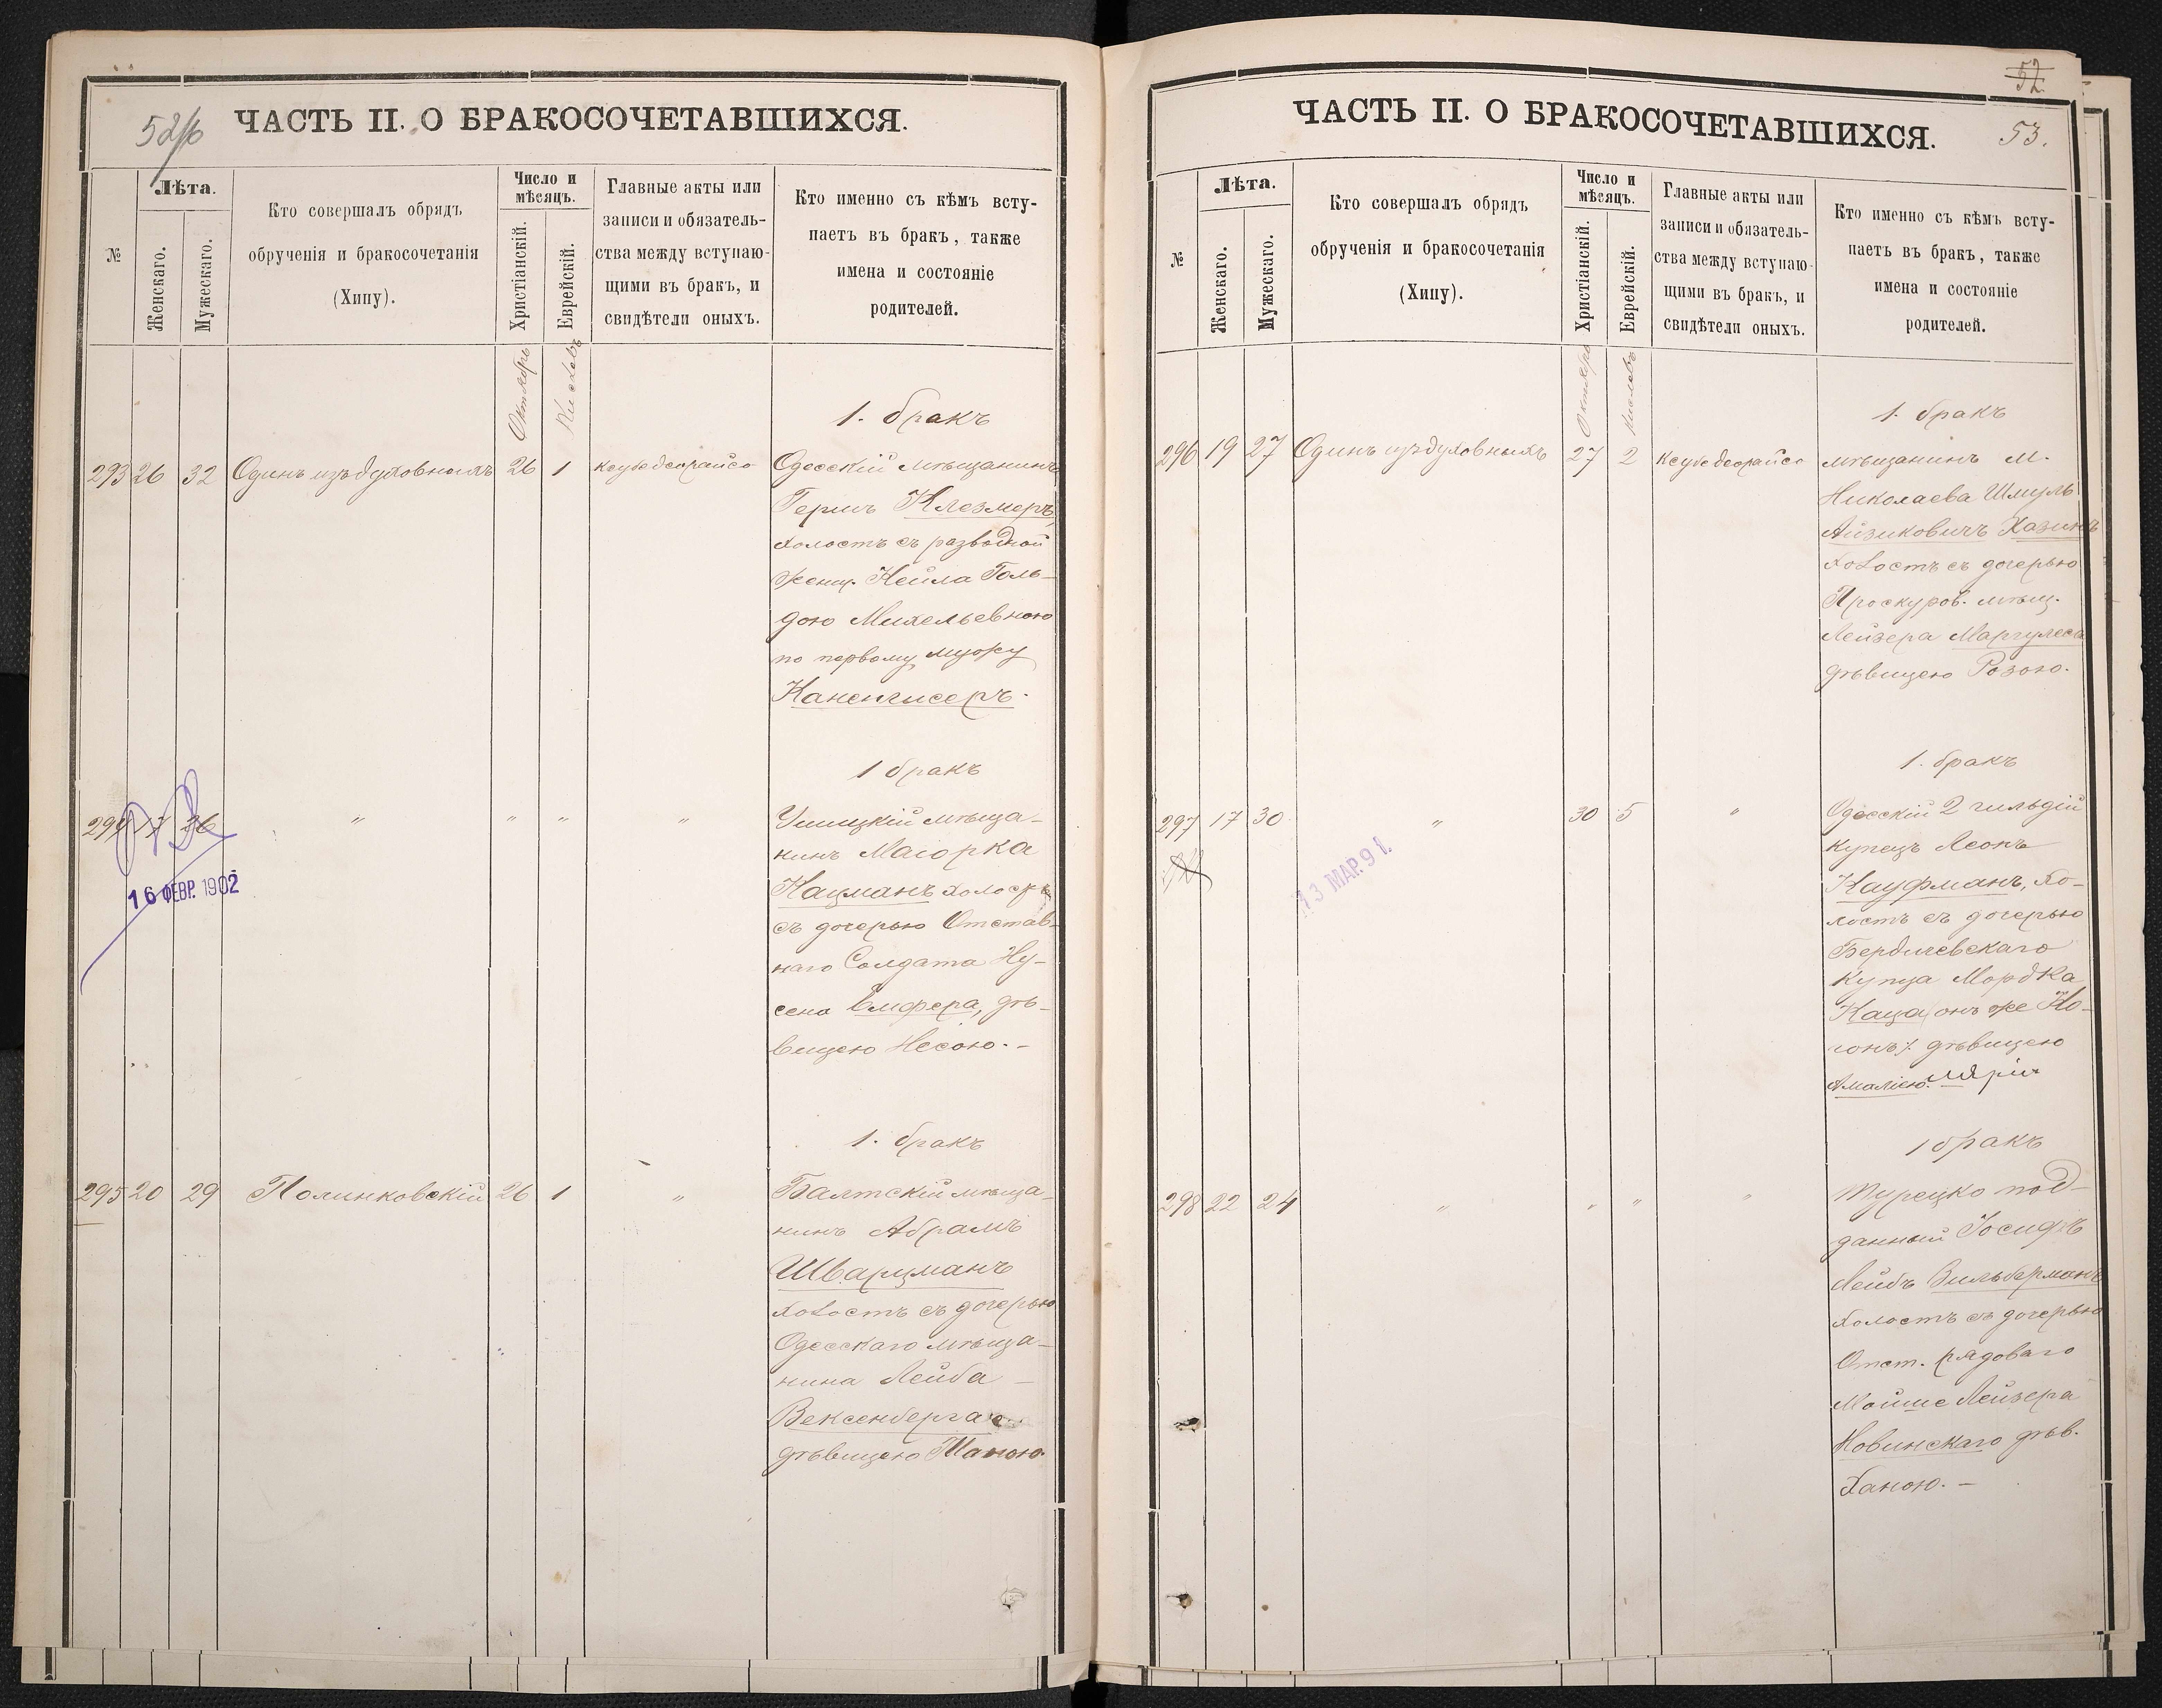 52об
ЧАСТЬ II. О БРАКОСОЧЕТАВШИХСЯ.
№
Лѣта.
Женскаго.
Мужескаго.
Кто совершалъ обрядъ
обрученія и бракосочетанія
(Хипу).
Число и
мѣсяцъ.
Христіанскій.
Еврейскій.
Главные акты или
записи и обязатель-
ства между вступаю-
щими въ бракъ, и
свидѣтели оныхъ.
Кто именно съ кѣмъ всту-
паетъ въ бракъ, также
имена и состояніе
родителей.
Октябрь
Кислевъ
1. бракъ
293 26 32 Одинъ изъ духовныхъ 26 1 Ксубе деорайсо Одесскій мѣщанинъ
Гершъ Клезмеръ,
холостъ съ разводной
женщ. Нейла Голь-
дою Михельевною
по первому мужу
Каненгисеръ.
1 бракъ
294 17 36 " " " " Ушицкій мѣща-
нинъ Маіорка
Кацманъ холостъ
съ дочерью Отстав-
наго Солдата Ну-
сена дѣ-
вицею Несою.-
16 ФЕВР. 1902
1. бракъ
295 20 29 Полинковскій 26 1 " Балтскій мѣща-
нинъ Абрамъ
Шварцманъ
холостъ съ дочерью
Одесскаго мѣща-
нина Лейба
Вексенберга
дѣвицею
52.
53.
ЧАСТЬ II. О БРАКОСОЧЕТАВШИХСЯ.
№
Лѣта.
Женскаго.
Мужескаго.
Кто совершалъ обрядъ
обрученія и бракосочетанія
(Хипу).
Число и
мѣсяцъ.
Христіанскій.
Еврейскій.
Главные акты или
записи и обязатель-
ства между вступаю-
щими въ бракъ, и
свидѣтели оныхъ.
Кто именно съ кѣмъ всту-
паетъ въ бракъ, также
имена и состояніе
родителей.
Октябрь
Кислевъ
1. бракъ
296 19 27 Одинъ изъ духовныхъ 27 2 Ксубе деорайсо мѣщанинъ м.
Николаева Шмуль
Айзиковичъ Хазинъ
холостъ съ дочерью
Проскуров. мѣщ.
Лейзера Маргулеса
дѣвицею Розою.
1. бракъ
297 17 30 " 30 5 " Одесскій 2 гильдіи
купецъ Леонъ
Кауфманъ, хо-
лостъ съ дочерью
Бердичевскаго
купца Мордка
Каца онъ же Ко-
гонъ дѣвицею
Амаліею. Марія
13 МАР. 91.
1 бракъ
298 22 24 " " " " Турецко под-
данный Іосифъ
Лейбъ Зильберманъ
холостъ съ дочерью
Отст. рядоваго
Мойше Лейзера
Новинскаго дѣв.
Ханою.-